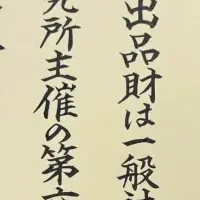 出品財は一般
究所主催の第